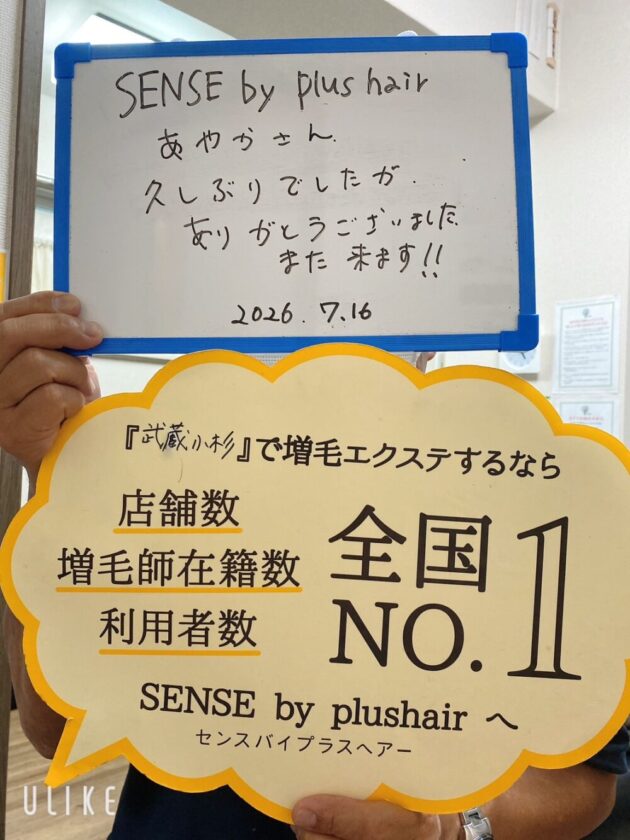 SENSE by plus hair
あやかさん
久しぶりでしたが.
ありがとうございました.
また来ます!!
2026.7.16
『武蔵小杉』で増毛エクステするなら
店舗数
増毛師在籍数
利用者数
全国
NO.1
SENSE by plushair へ
センスバイプラスヘアー
ULIKE